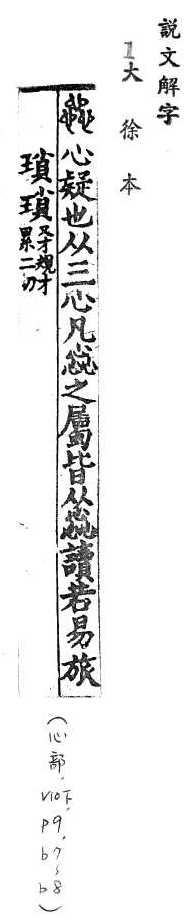 説文解字
1大徐本
惢心疑也从三心凡惢之屬皆从惢讀若易旅
瑣瑣又才規才
累二切
(心部,V10下,p9,b7~b8)